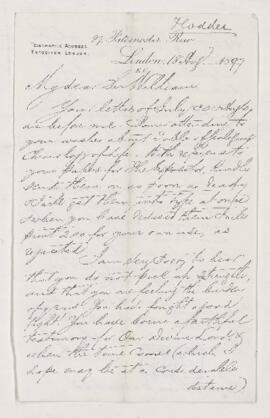 Hodder
27 Paternoster Row
TELEGRAPHIC ADDRESS,
EXPOSITOR LONDON.
London, 18 Aug 1897
My dear Sir William
Your letter of July
is before me. I have attended to
your wishes about
As to
your papers for the Expositor, kindly
send them on as soon as ready
& I will get them into type at once
& when you have revised them I will
print 200 for your own use, as
I am very sorry to hear
that you do not feel as
and that you are feeling the burden
of years. You have fought a good
fight. You have borne a faithful
testimony for Our Divine Lord &
when the time comes (which I
hope may be at a considerable
distance)